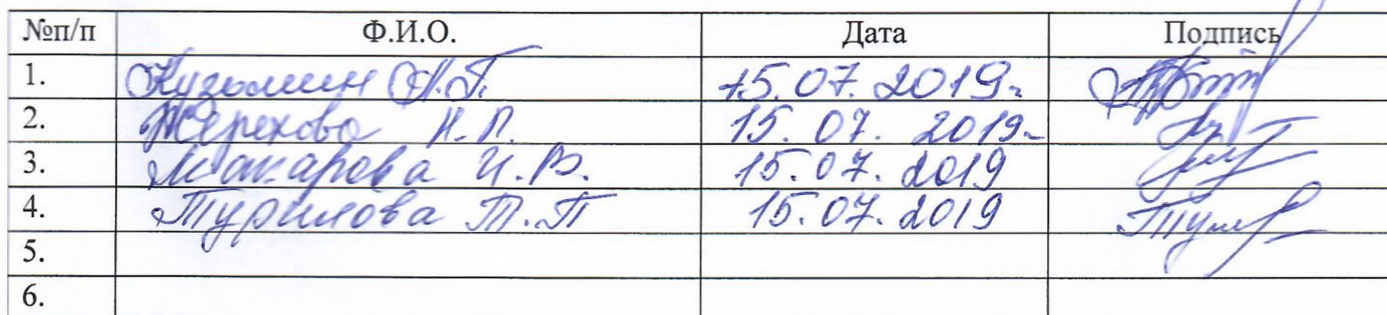 №п/п Ф.И.О. Дата Подпись
1. Кузьмин А.П. 15.07.2019.
2. Терехова Н.П. 15.07.2019.
3. Макарова И.В. 15.07.2019
4. Турилова Т.П 15.07.2019
5.
6.